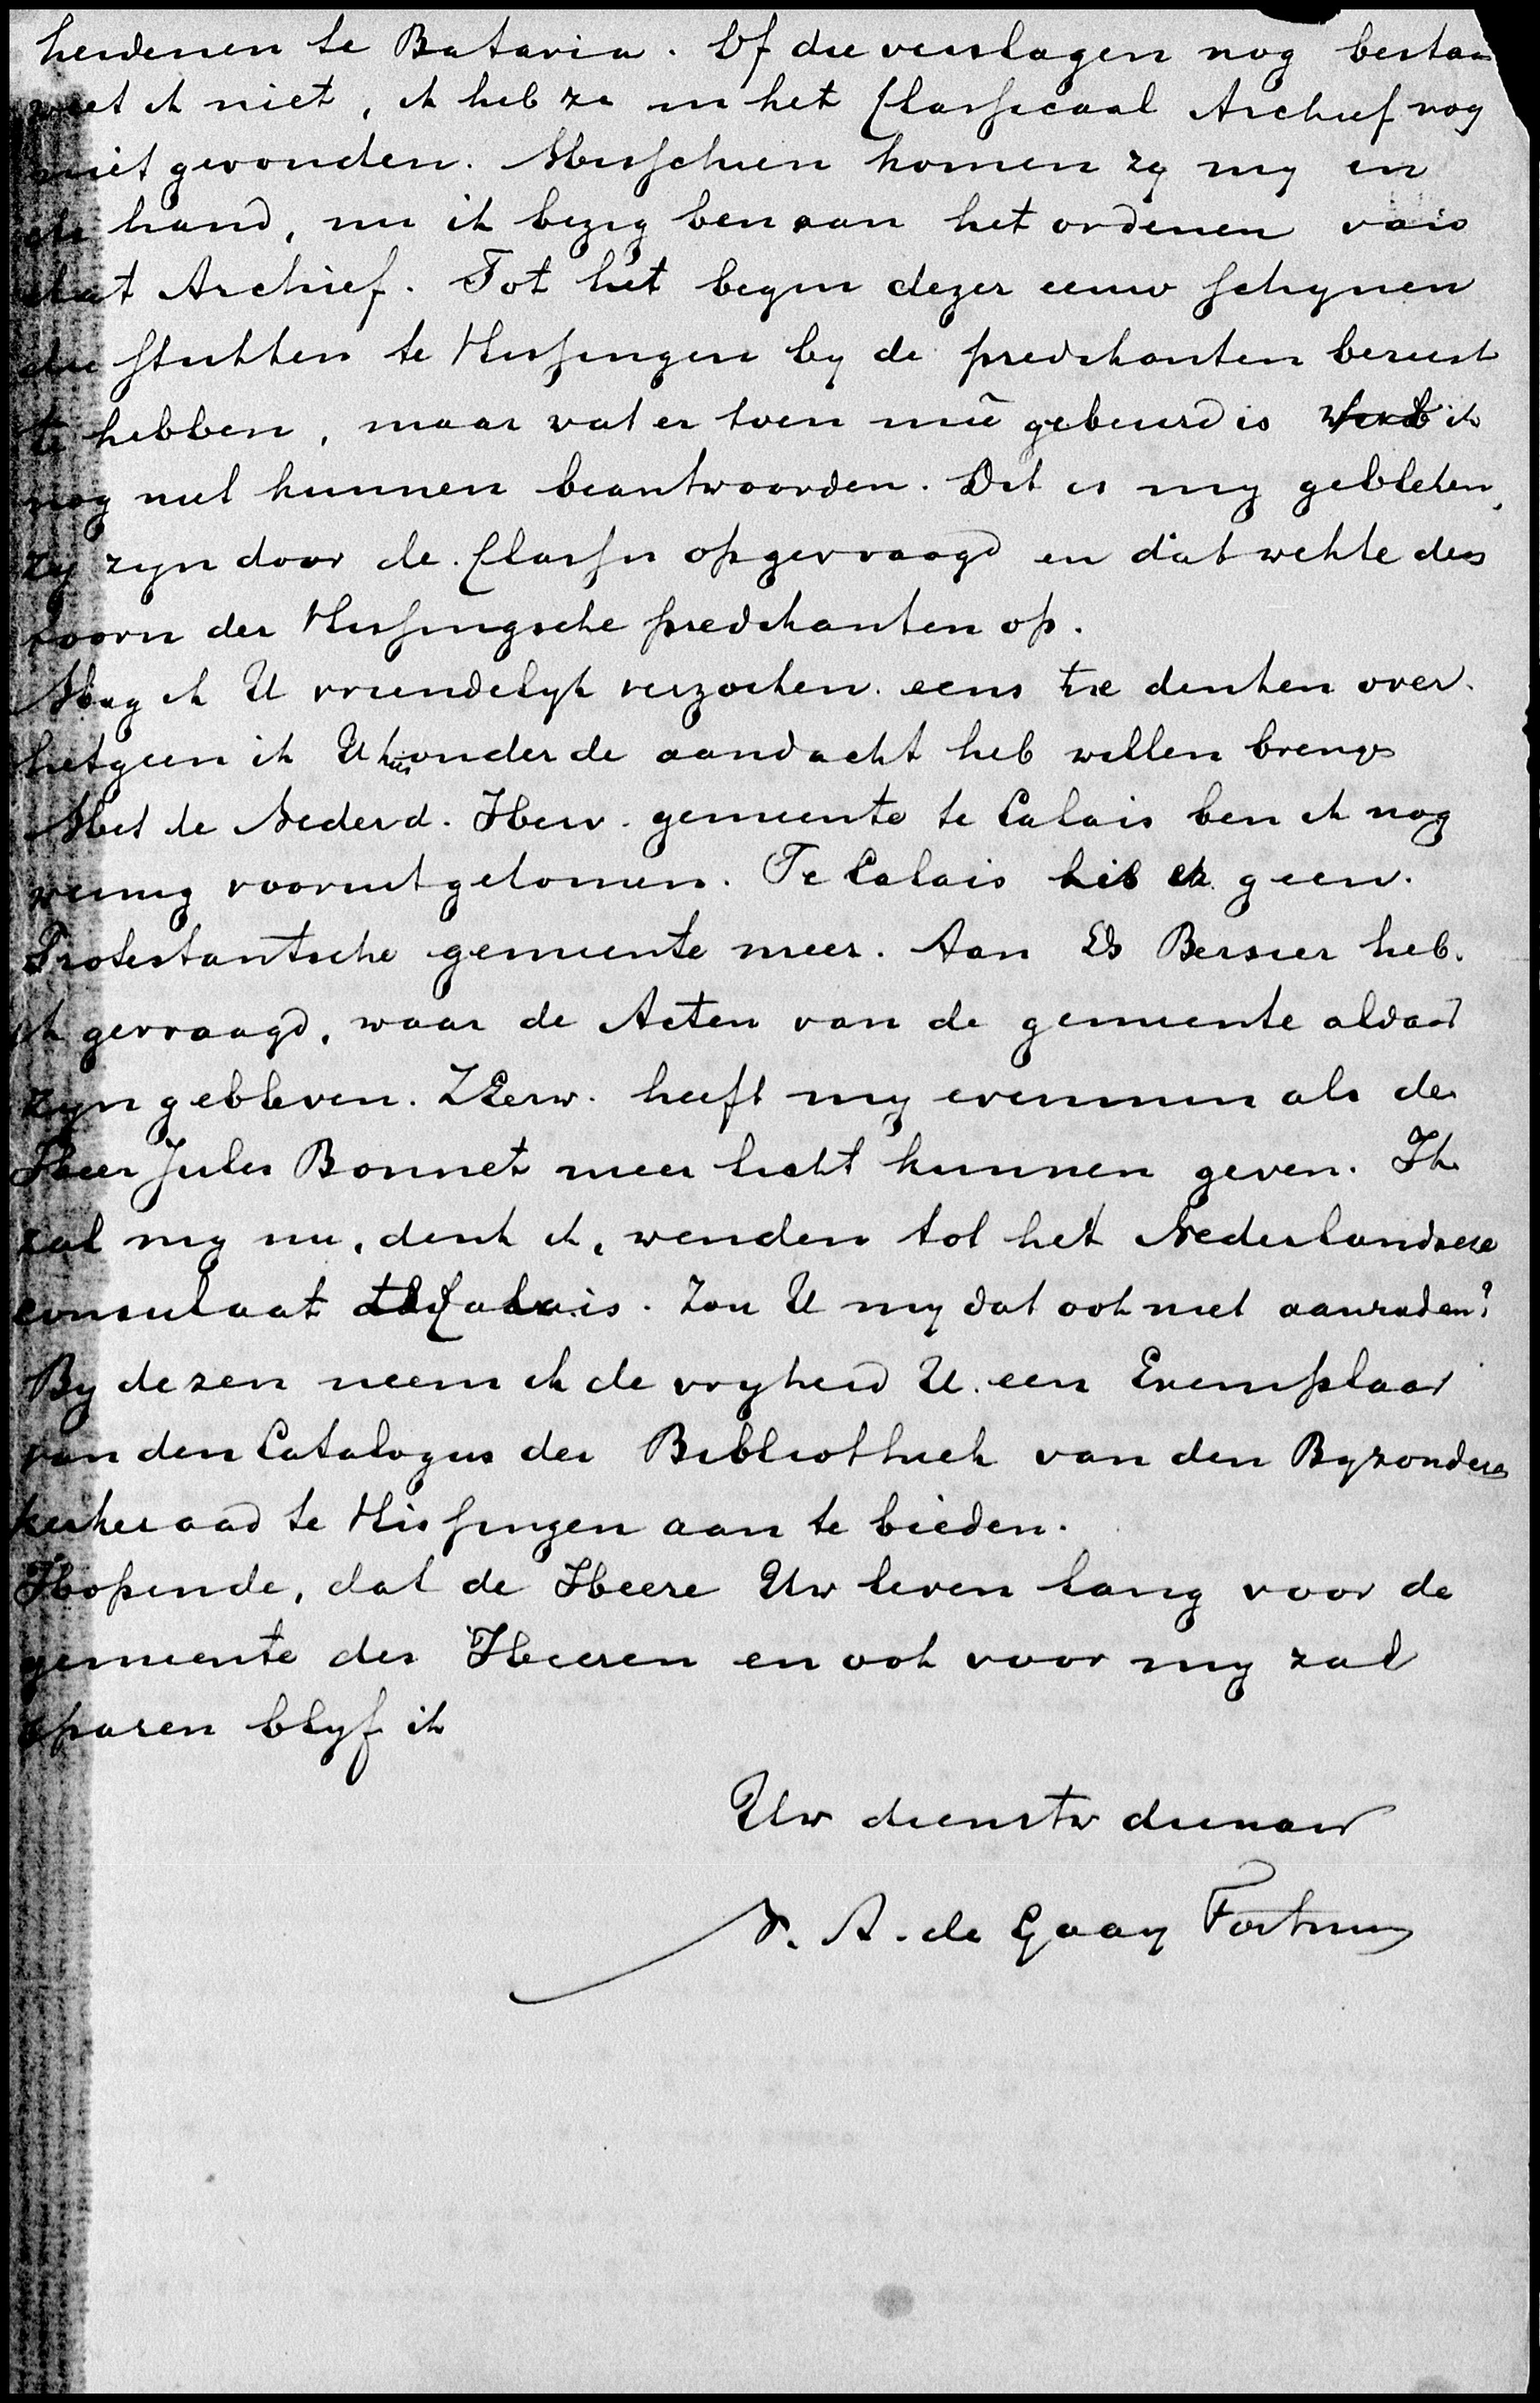 heidenen te Batavia. Of die verslagen nog bestaan
weet ik niet, ik heb ze in het Classicaal Archief nog
niet gevonden. Misschien komen zy my in
de hand, nu ik bezig ben aan het ordenen van
dat Archief. Tot het begin dezer eeuw schynen
die stukken te Vlissingen by de predikanten berust
te hebben, maar wat er toen mee gebeurd is ik
nog niet kunnen beantwoorden. Dit is my gebleken,
zy zyn door de Classis opgevraagd en dat wekte den
toorn der Vlissingsche predikanten op.
Mag ik U vriendelyk verzoeken eens te denken over
hetgeen ik U hier onder de aandacht heb willen brengen
Met de Nederd. Herv. gemeente te Calais ben ik nog
weinig vooruitgekomen. Te Calais is er geen
Protestantsche gemeente meer. Aan Ds Bersier heb
ik gevraagd, waar de Acten van de gemeente aldaar
zyn gebleven. ZEerw. heeft my evenmin als de
Heer Jules Bonnet meer licht kunnen geven. Ik
zal my nu, denk ik, wenden tot het Nederlandsche
consulaat te Calais. Zou U my dat ook niet aanraden?
By dezen neem ik de vryheid U een Exemplaar
van den Catalogus der Bibliotheek van den Byzonderen
kerkeraad te Vlissingen aan te bieden.
Hopende, dat de Heere Uw leven lang voor de
gemeente des Heeren en ook voor my zal
sparen blyf ik
Uw dienstw dienaar
A. de Gaay Fortman